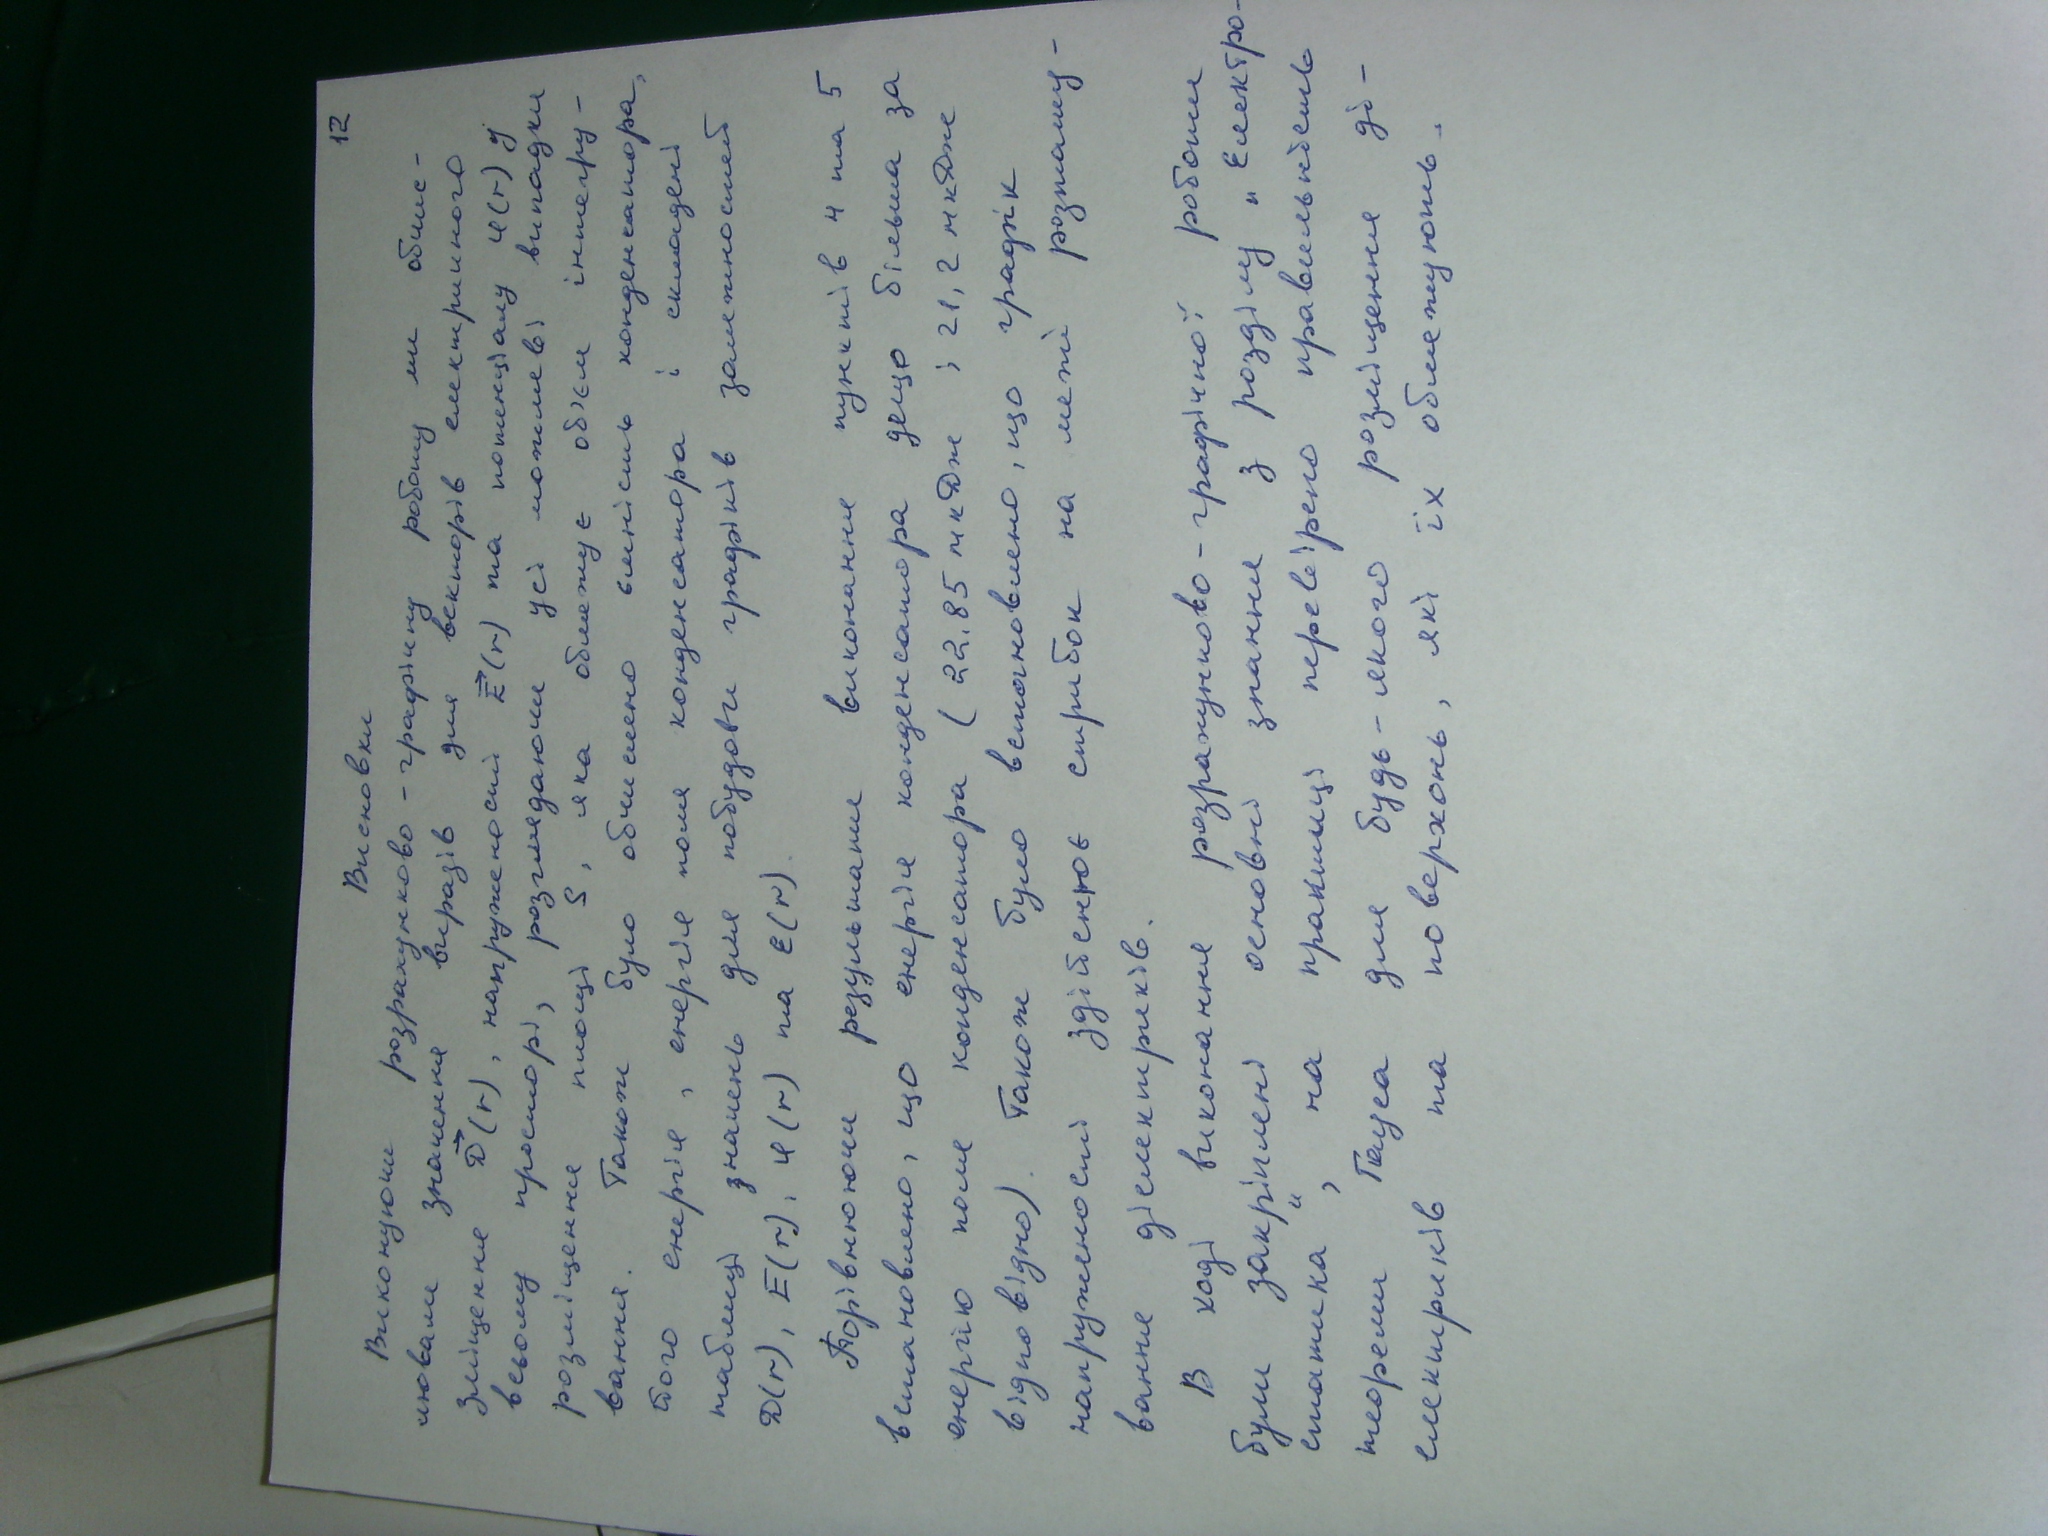 12
Висновки
Виконуючи розрахунково-графічну роботу ми обчис-
лювали значення виразів для векторів електричного
зміщення D⃗(r), напруженості E⃗(r) та потенціалу φ(r) у
всьому просторі, розглядаючи усі можливі випадки
розміщення площі S, яка обмежує об'єм інтегру-
вання. Також було обчислено ємність конденсатора,
його енергія, енергія поля конденсатора і складені
таблиці значень для побудови графіків залежностей
D(r), E(r), φ(r) та ε(r).
Порівнюючи результати виконання пунктів 4 та 5
встановлено, що енергія конденсатора дещо більша за
енергію поля конденсатора (22,85 мкДж і 21,2 мкДж
відповідно). Також було встановлено, що графік
напруженості здійснює стрибок на межі розташу-
вання діелектриків.
В ході виконання розрахунково-графічної роботи
були закріплені основні знання з розділу „Електро-
статика“, на практиці перевірено правильність
теореми Гауса для будь-якого розміщення ді-
електриків та поверхонь, які їх обмежують.